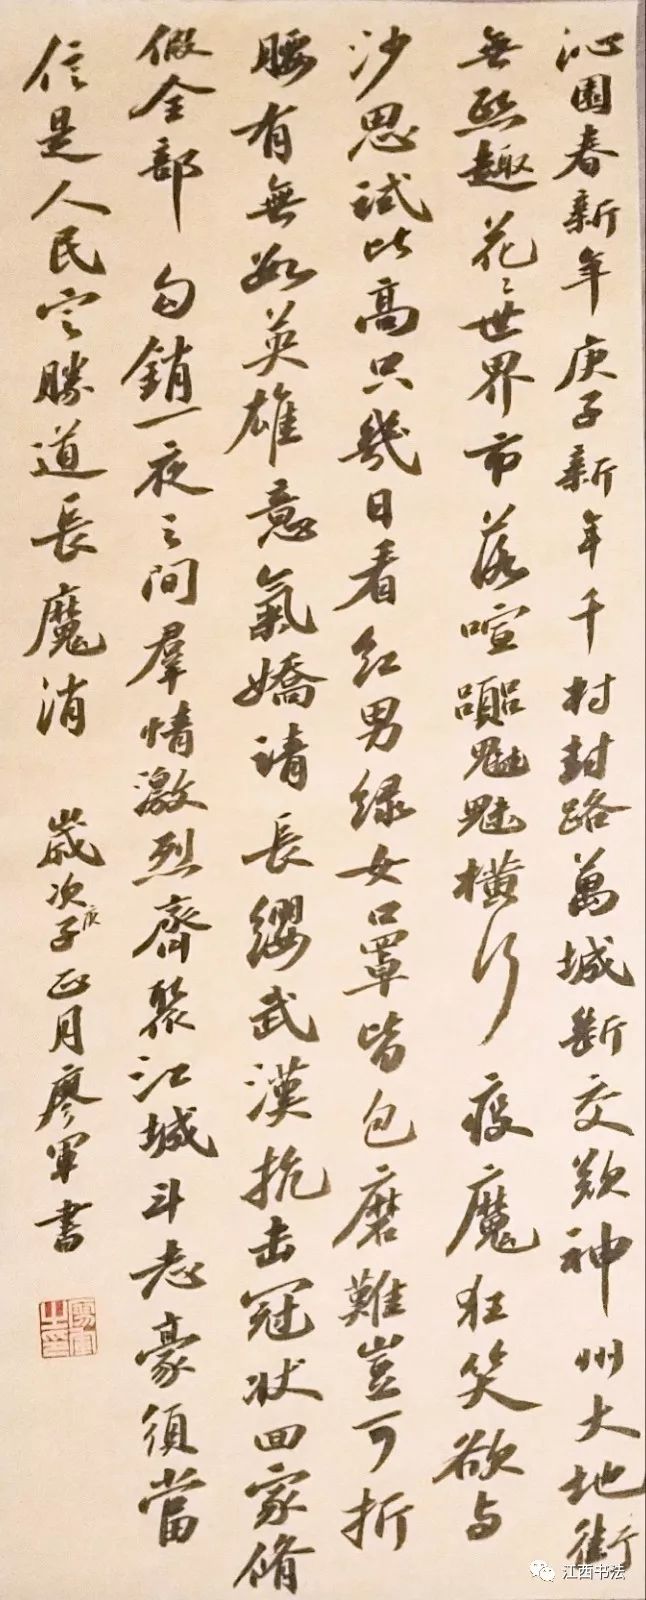 沁園春新年庚子新年千村封路萬城斷交歎神州大地街
無熙趣花々世界市落喧囂魑魅橫行疫魔狂笑欲与
沙思試比高只幾日看紅男綠女口罩皆包磨難豈可折
腰有無數英雄意氣嬌請長纓武漢抗击冠狀回家脩
假全部勾銷一夜之间羣情激烈齊聚江城斗志豪須當
信是人民定勝道長魔消
歲次庚子正月廖軍書
江西书法